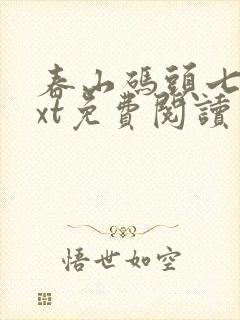 春山碼頭七
xt免費閱讀
悟世如空